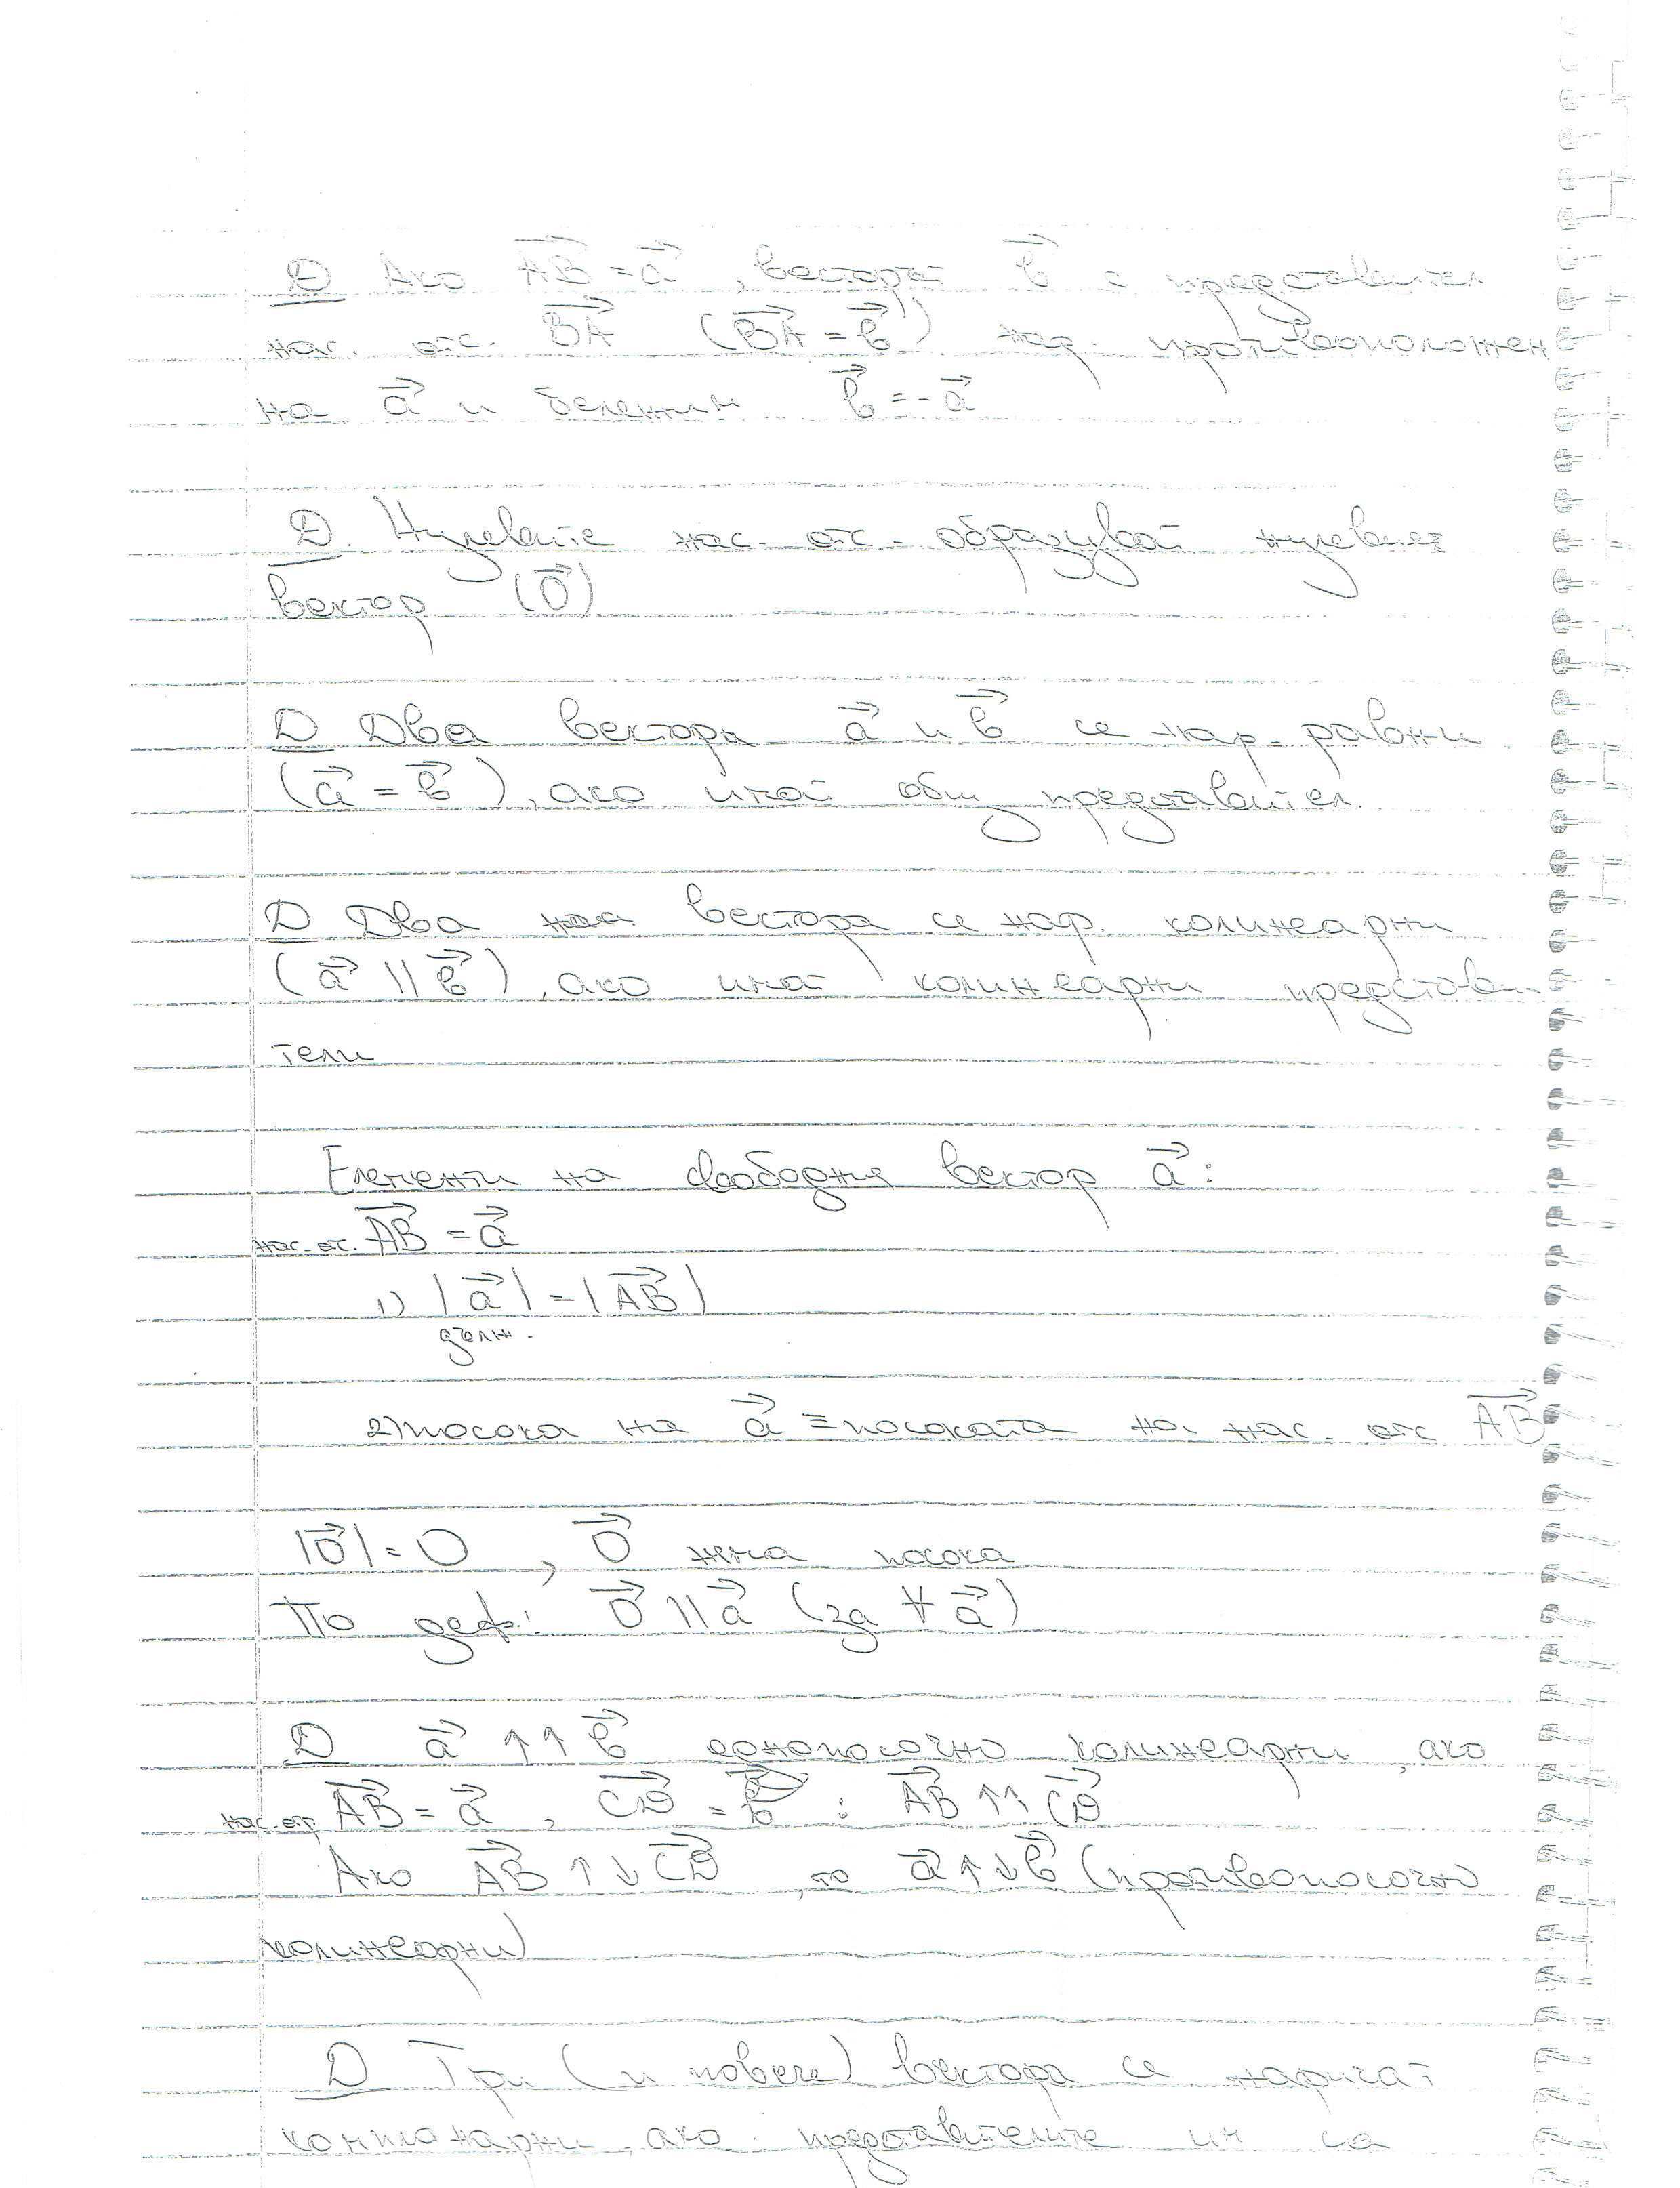 D Ако AB⃗ = a⃗, векторът b⃗ с представител
нас. отс. BA⃗ (BA⃗ = b⃗) нар. противоположен
на a⃗ и бележим b⃗ = -a⃗
D. Нулевите нас. отс. образуват нулевият
вектор (0⃗)
D Два вектора a⃗ и b⃗ се нар. равни
(a⃗ = b⃗), ако имат общ представител.
D Два вектора се нар. колинеарни
(a⃗ || b⃗), ако имат колинеарни представи-
тели
Елементи на свободния вектор a⃗:
нас. от. AB⃗ = a⃗
1) |a⃗| = |AB⃗|
дълж.
2) посока на a⃗ ≡ посоката на нас. отс AB⃗
|0⃗| = 0, 0⃗ няма посока
По деф: 0⃗ || a⃗ (за ∀ a⃗)
D a⃗ ↑↑ b⃗ еднопосочно колинеарни, ако
нас. отр. AB⃗ = a⃗, CD⃗ = b⃗ : AB⃗ ↑↑ CD⃗
Ако AB⃗ ↑↓ CD⃗, то a⃗ ↑↓ b⃗ (противопосочно
колинеарни)
D Три (и повече) вектора се наричат
компланарни, ако представителите им са